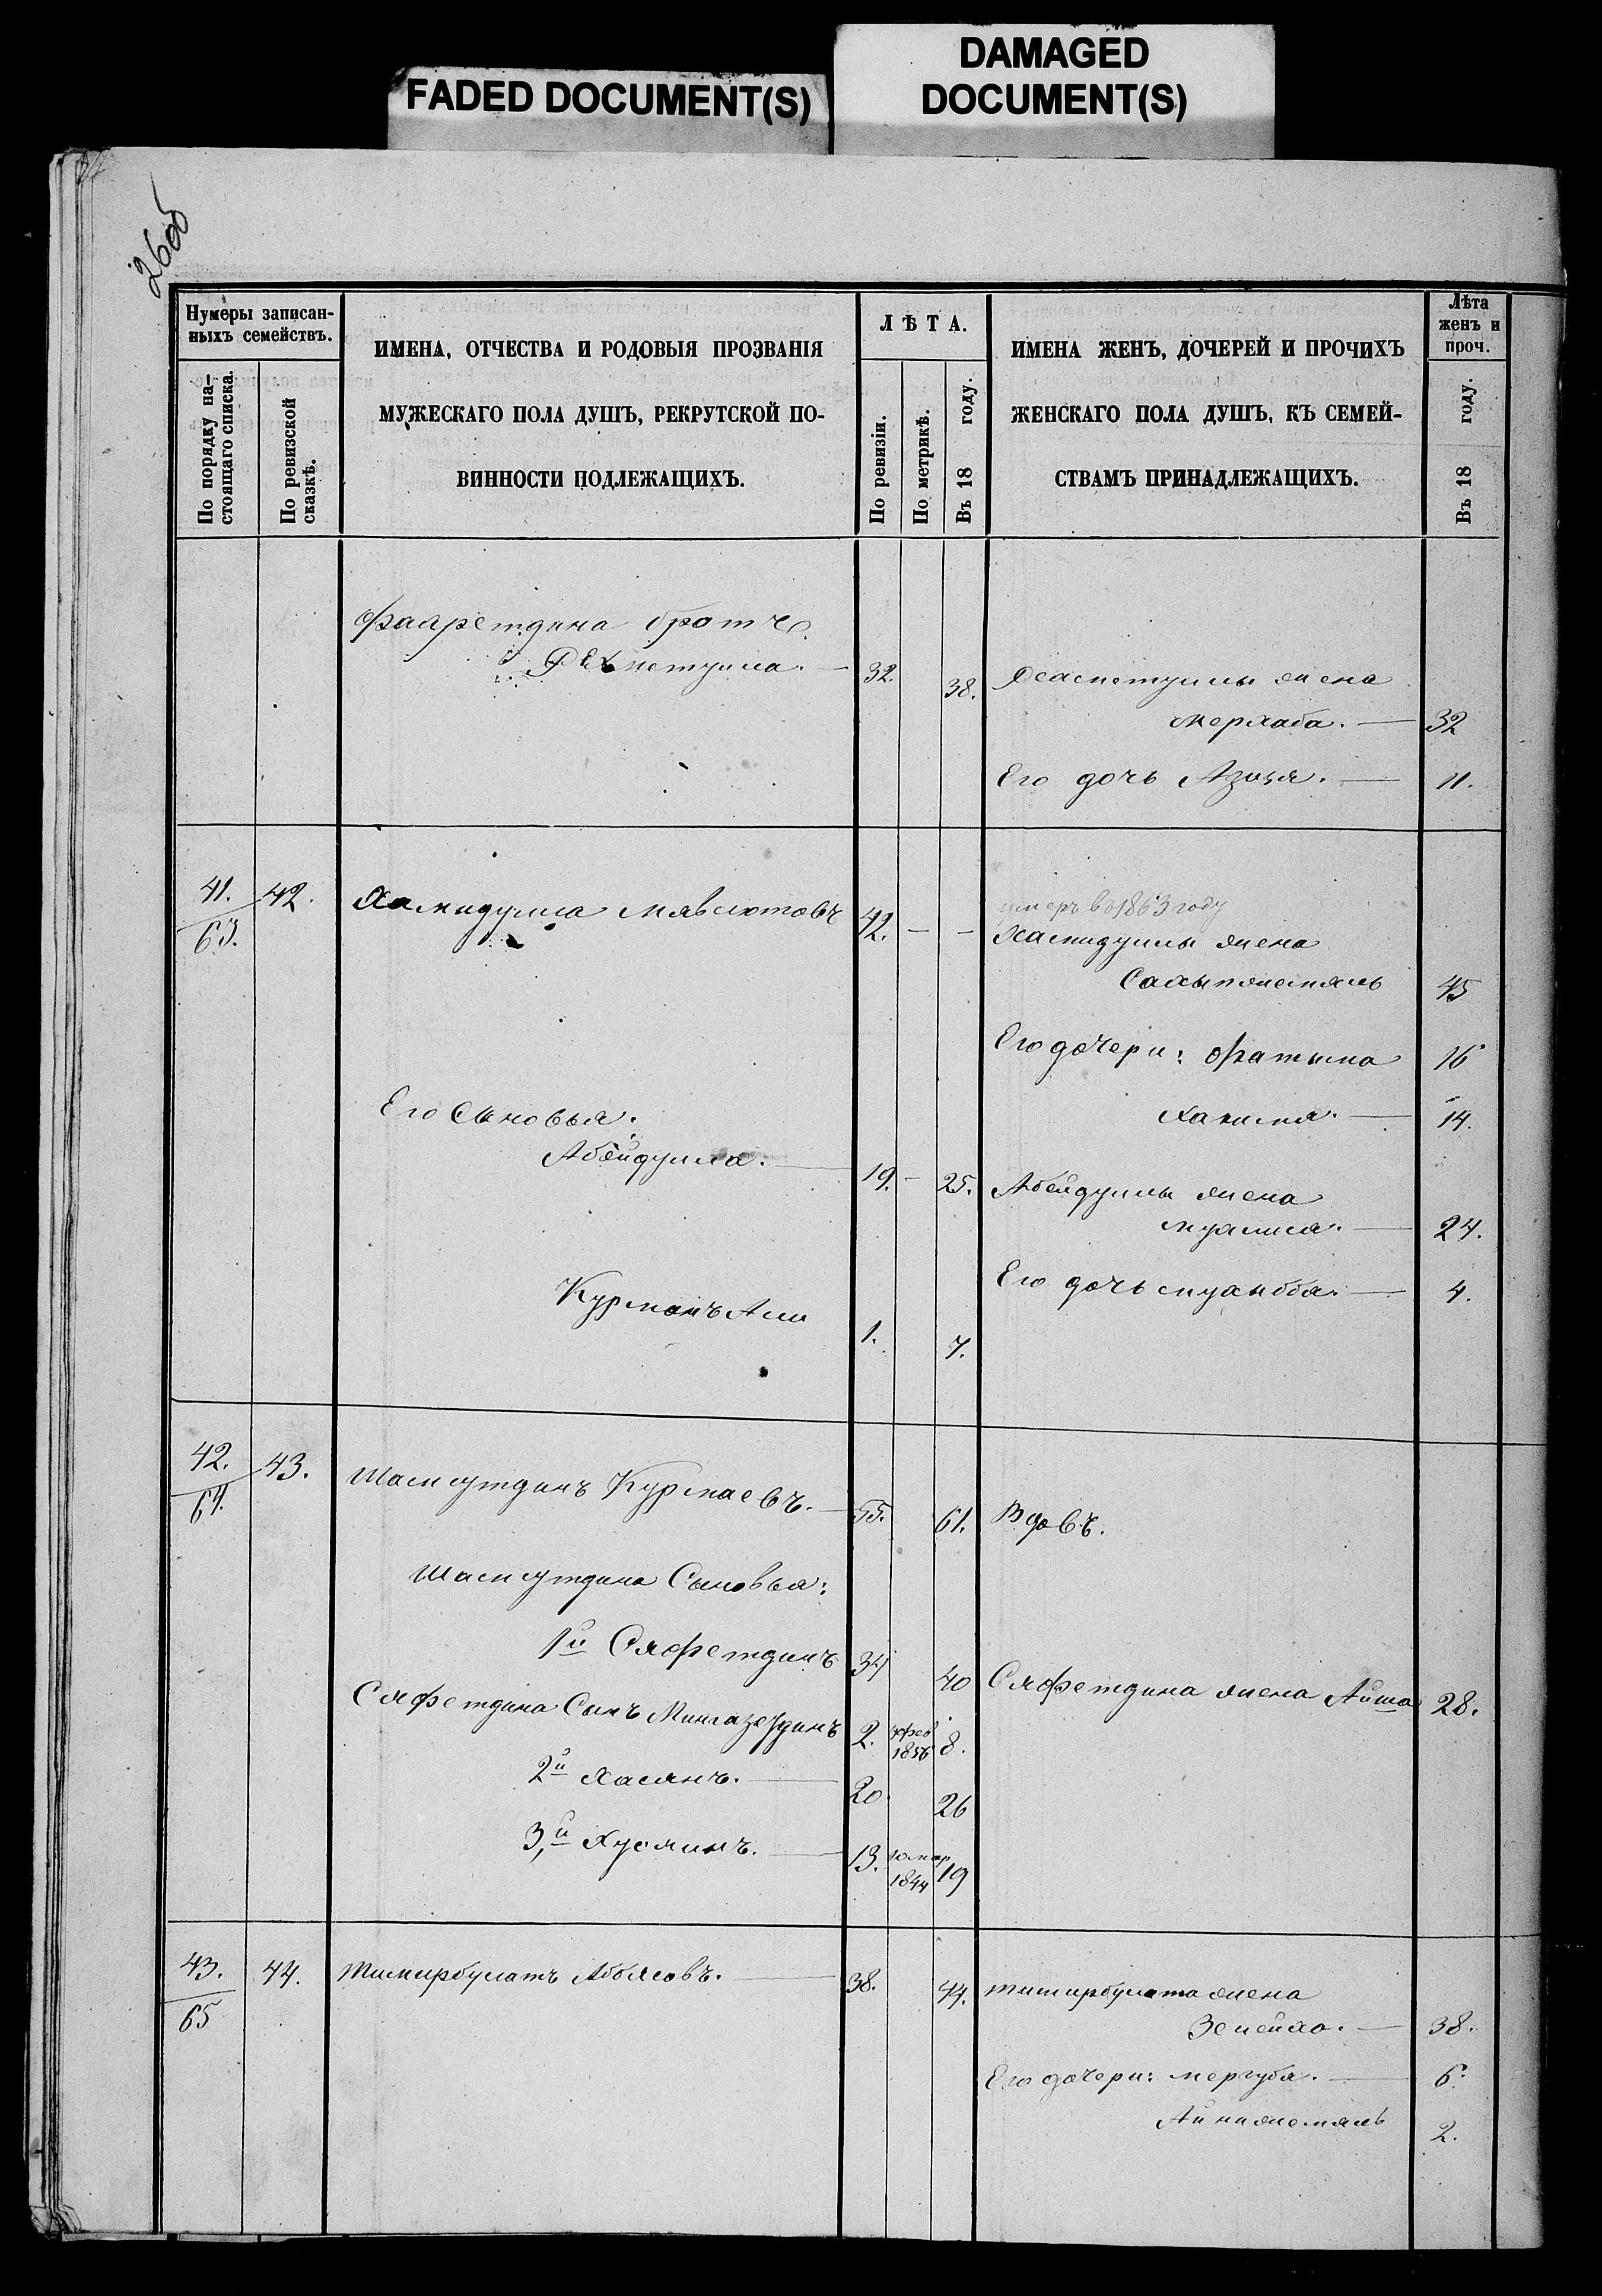 FADED DOCUMENT(S)
DAMAGED
DOCUMENT(S)
26об
Нумеры записан-
ныхъ семействъ.
По порядку на-
стоящаго списка.
По ревизской
сказкѣ.
ИМЕНА, ОТЧЕСТВА И РОДОВЫЯ ПРОЗВАНІЯ
МУЖЕСКАГО ПОЛА ДУШЪ, РЕКРУТСКОЙ ПО-
ВИННОСТИ ПОДЛЕЖАЩИХЪ.
Л Ѣ Т А.
По ревизіи.
По метрикѣ.
Въ 18 году.
ИМЕНА ЖЕНЪ, ДОЧЕРЕЙ И ПРОЧИХЪ
ЖЕНСКАГО ПОЛА ДУШЪ, КЪ СЕМЕЙ-
СТВАМЪ ПРИНАДЛЕЖАЩИХЪ.
Лѣта
женъ и
проч.
Въ 18 году.
братъ
32. 38. жена
Мерхаба. 32
Его дочь 11.
41. 42. Хамидулла Мявлютовъ 42. — —
63.
умеръ в 1863 году
Хамидуллы жена
45
Его дочери: Фатыма 16
Халиля. 14.
Его Сыновья:
Абейдулла. 19. — 25. Абейдуллы жена
24.
Его дочь 4.
Курманъ Али 1. 7.
42. 43. Шамсутдинъ Курмаевъ. 55. 61. Вдовъ.
64.
Шамсутдина Сыновья:
1й Сяфетдинъ 34 40 Сяфетдина жена Айша 28.
Сяфетдина Сынъ Мингазетдинъ 2. 1856 8.
2й Хасянъ. 20 26
3й Хусяинъ. 13. 1844 19
43. 44. Тимирбулатъ Аббясовъ. 38. 44. Тимирбулата жена
65
Зелейха. 38.
Его дочери: Мергубя. 6.
Айниджемяль 2.